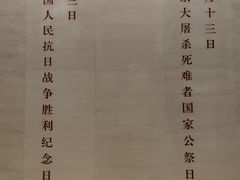 月十三日
京大屠杀死难者国家公祭日
三日
国人民抗日战争胜利纪念日